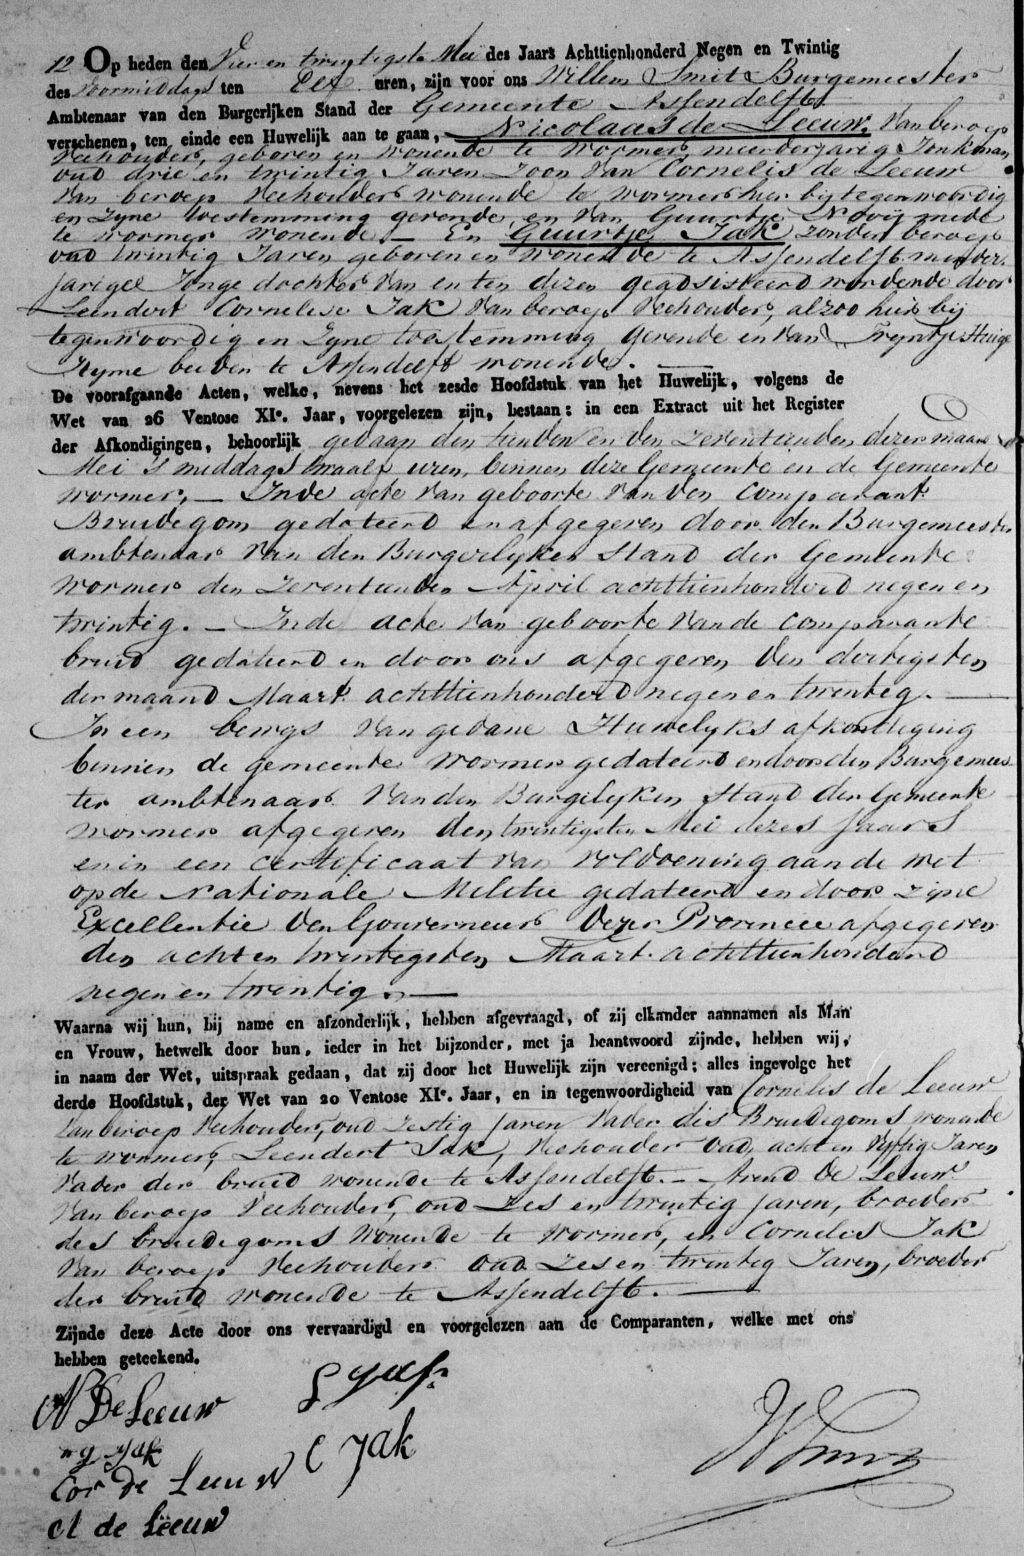 12 Op heden den Vier en twintigste Mei des Jaars Achttienhonderd Negen en Twintig
des voormiddags ten Elf uren, zijn voor ons Willem Smit Burgemeester
Ambtenaar van den Burgerlijken Stand der Gemeente Assendelft
verschenen, ten einde een Huwelijk aan te gaan, Nicolaas de Leeuw, van beroep
Veehouder, geboren en wonende te Wormer, meerderjarig Jonkman,
oud drie en twintig Jaren Zoon van Cornelis de Leeuw
van beroep Veehouder wonende te Wormer hier bij tegenwoordig
en zyne toestemming gevende, en van Guurtje Nooij mede
te Wormer wonende. – En Guurtje Jak zonder beroep
oud twintig Jaren geboren en wonende te Assendelft minder-
jarige Jonge dochter van en ten dezen geadsisteerd wordende door
Leendert Cornelisz Jak van beroep Veehouder, alzoo hier bij
tegenwoordig en zyne toestemming gevende en van Tryntje
beiden te Assendelft wonende.
De voorafgaande Acten, welke, nevens het zesde Hoofdstuk van het Huwelijk, volgens de
Wet van 26 Ventose XIe. Jaar, voorgelezen zijn, bestaan: in een Extract uit het Register
der Afkondigingen, behoorlijk gedaan den tienden en den zeventienden dezer maand
Mei 's middags twaalf uren, binnen deze Gemeente en de Gemeente
Wormer, – In de acte van geboorte van den Comparant
Bruidegom gedateerd en afgegeven door den Burgemeester
ambtenaar van den Burgerlyken Stand der Gemeente
Wormer den zeventienden April achttienhonderd negen en
twintig. – In de acte van geboorte van de comparante
bruid gedateerd en door ons afgegeven den dertigsten
der maand Maart achttienhonderd negen en twintig.
In een bewys van gedane Huwelyks afkondiging
binnen de gemeente Wormer gedateerd en door den Burgemees-
ter ambtenaar van den Burgelyken Stand der Gemeente
Wormer afgegeven den twintigsten Mei dezes Jaars
en in een certificaat van voldoening aan de wet
op de Nationale Militie gedateerd en door zijne
Excellentie den Gouverneur dezer Provincie afgegeven
den acht en twintigsten Maart achttienhonderd
negen en twintig.
Waarna wij hun, bij name en afzonderlijk, hebben afgevraagd, of zij elkander aannamen als Man
en Vrouw, hetwelk door hun, ieder in het bijzonder, met ja beantwoord zijnde, hebben wij,
in naam der Wet, uitspraak gedaan, dat zij door het Huwelijk zijn vereenigd; alles ingevolge het
derde Hoofdstuk, der Wet van 20 Ventose XIe. Jaar, en in tegenwoordigheid van Cornelis de Leeuw
van beroep Veehouder, oud zestig Jaren Vader des Bruidegoms wonende
te Wormer, Leendert Jak, Veehouder oud, acht en Vyftig Jaren
Vader der bruid wonende te Assendelft. – Arend de Leeuw
van beroep Veehouder, oud zes en twintig Jaren, broeder
des bruidegoms wonende te Wormer, en Cornelis Jak
van beroep Veehouder oud zes en twintig Jaren, broeder
der bruid wonende te Assendelft.
Zijnde deze Acte door ons vervaardigd en voorgelezen aan de Comparanten, welke met ons
hebben geteekend.
N De Leeuw
L Jak
g jak
C Jak
Cor de Leeuw
A de Leeuw
W Smit